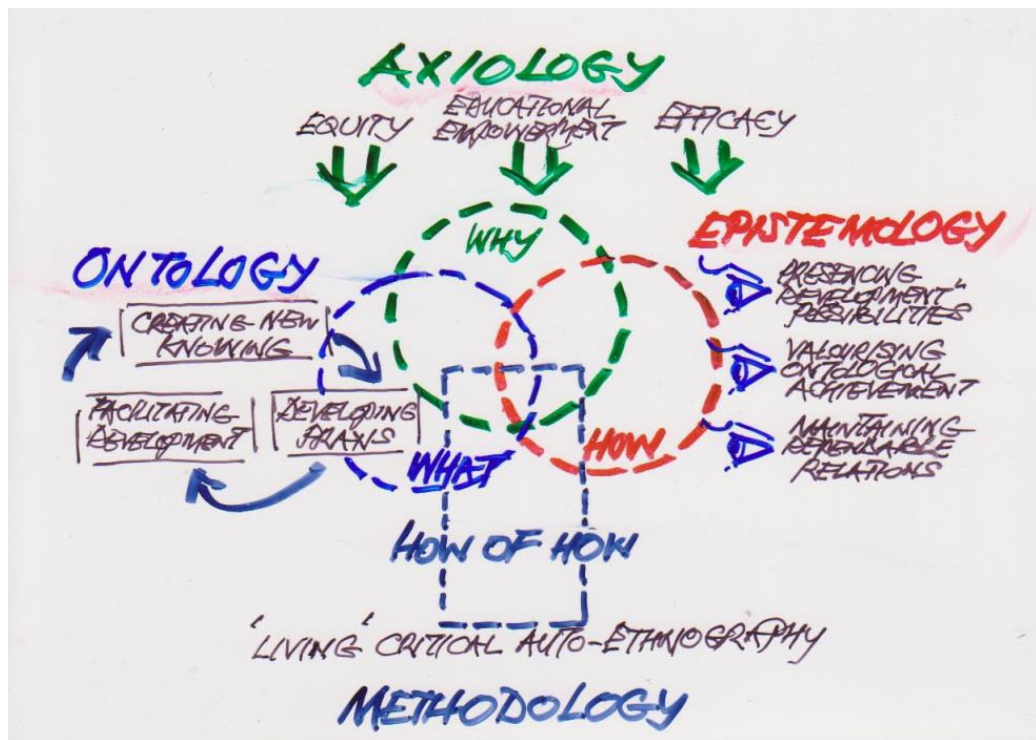 AXIOLOGY
EQUITY
EDUCATIONAL
EMPOWERMENT
EFFICACY
WHY
ONTOLOGY
CREATING NEW
KNOWING
FACILITATING
DEVELOPMENT
DEVELOPING
WHAT
EPISTEMOLOGY
PRESENCING
DEVELOPMENT"
POSSIBILITIES
VALOURISING
ONTOLOGICAL
ACHIEVEMENT
MAINTAINING
DEPENDABLE
RELATIONS
HOW
HOW OF HOW
'LIVING' CRITICAL AUTO-ETHNOGRAPHY
METHODOLOGY